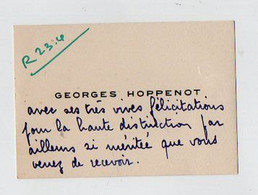 R 23.4
GEORGES HOPPENOT
avec ses très vives félicitations
pour la haute distinction par
ailleurs si méritée que vous
venez de recevoir.